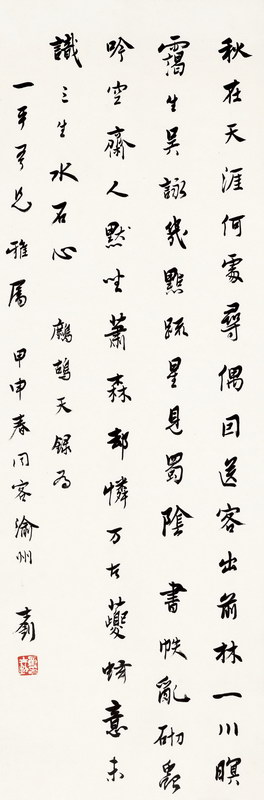 秋在天涯何處尋偶因送客出前林一川暝
靄生吳詠幾點疏星見蜀陰 書帙亂砌蟲
吟空齋人默坐蕭森却憐万古夔蚿意未
識三生水石心 鷓鴣天錄為
一平吾兄雅屬 甲申春同客渝州 士釗